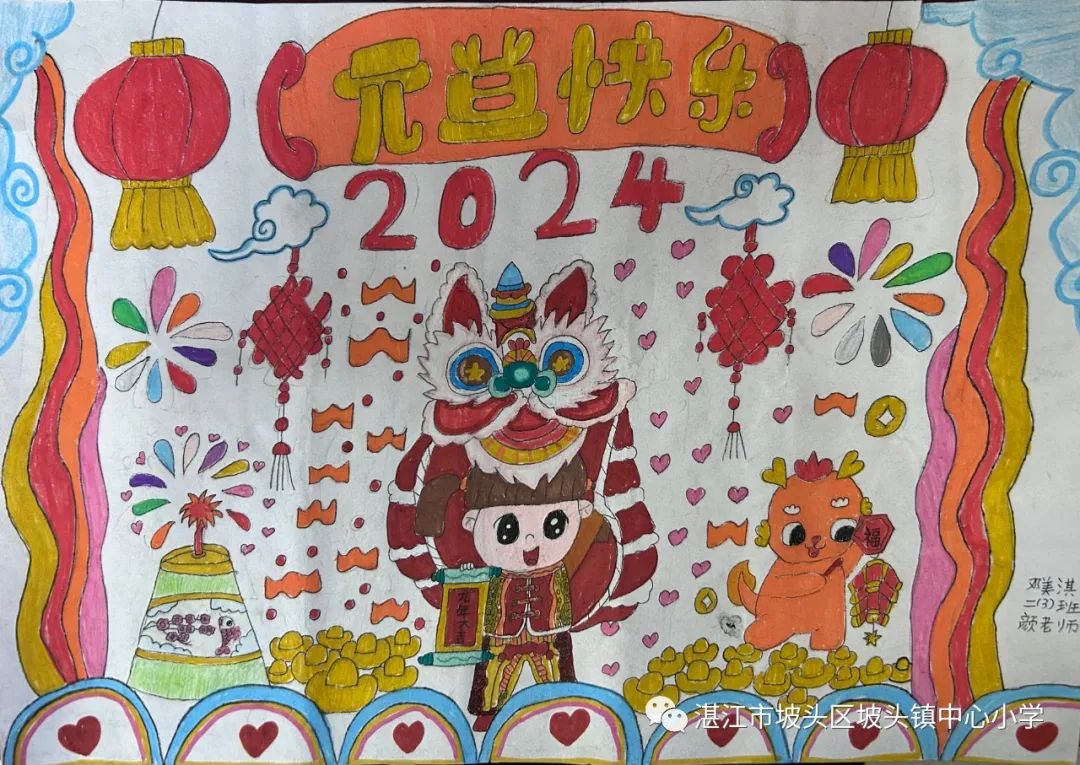 元旦快乐
2024
福
龙年大吉
邓美淇
二(3)班
颜老师
湛江市坡头区坡头镇中心小学